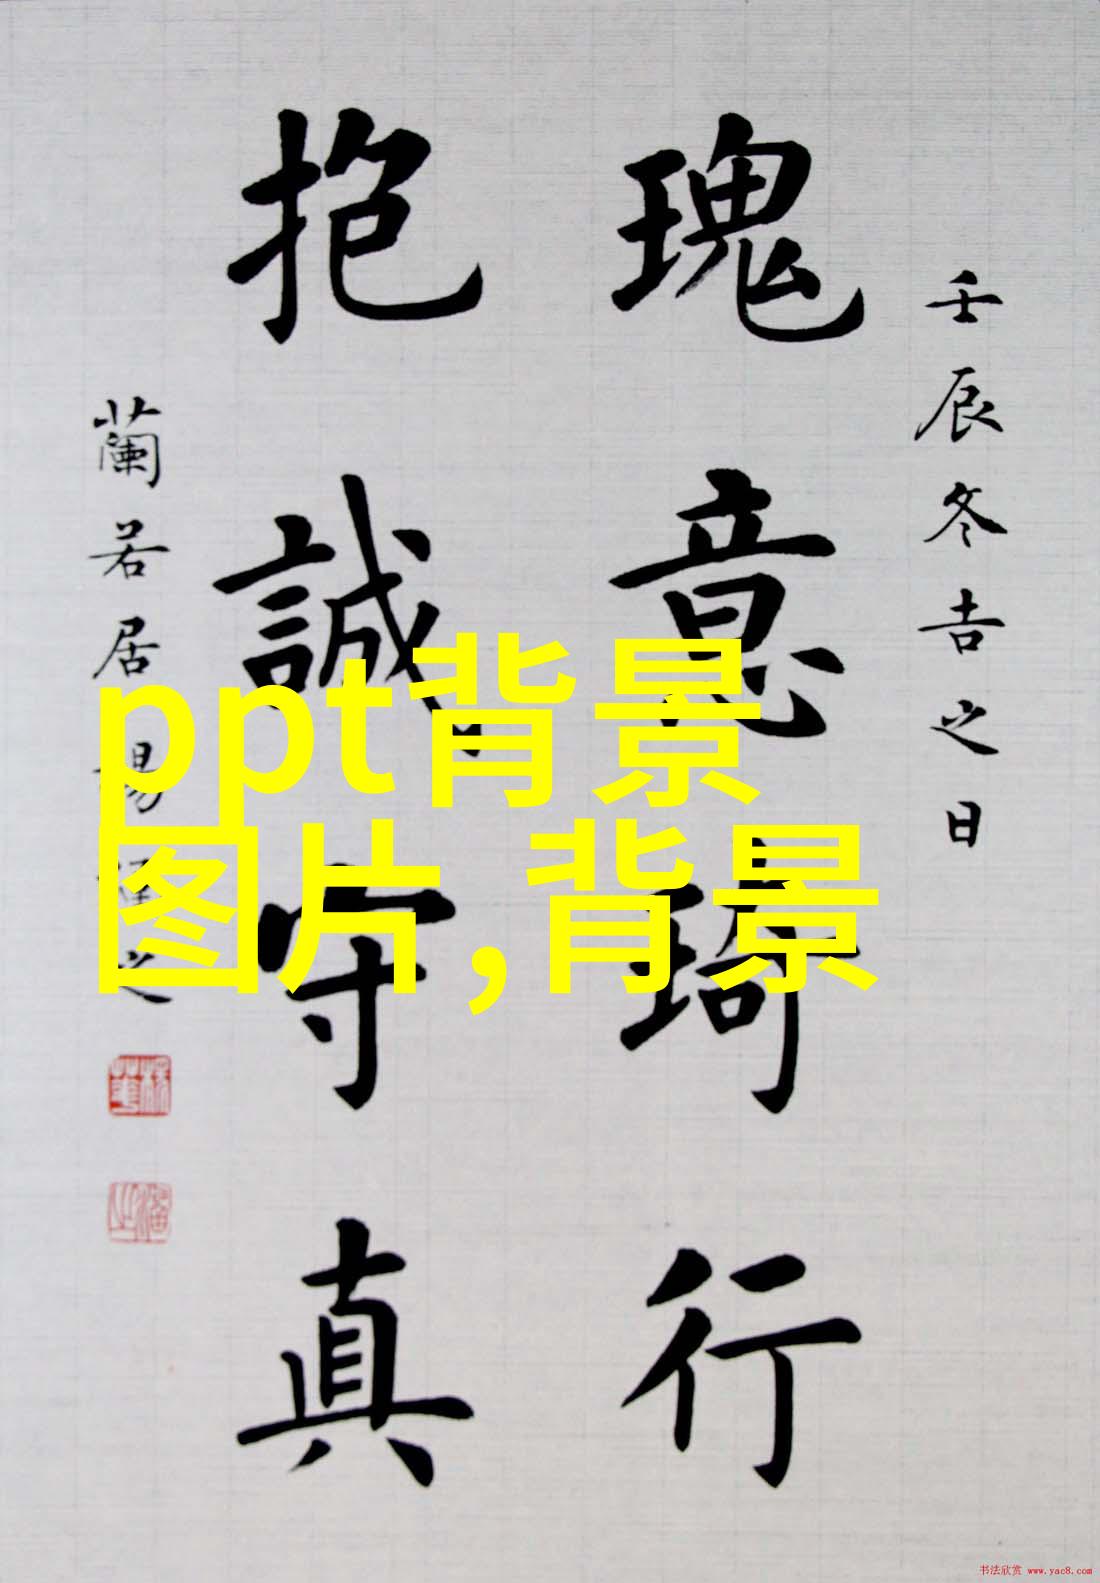 壬辰冬吉之日
瑰意琦行
抱誠守真
蘭若居之
ppt背景
图片,背景
书法欣赏 www.yac8.com